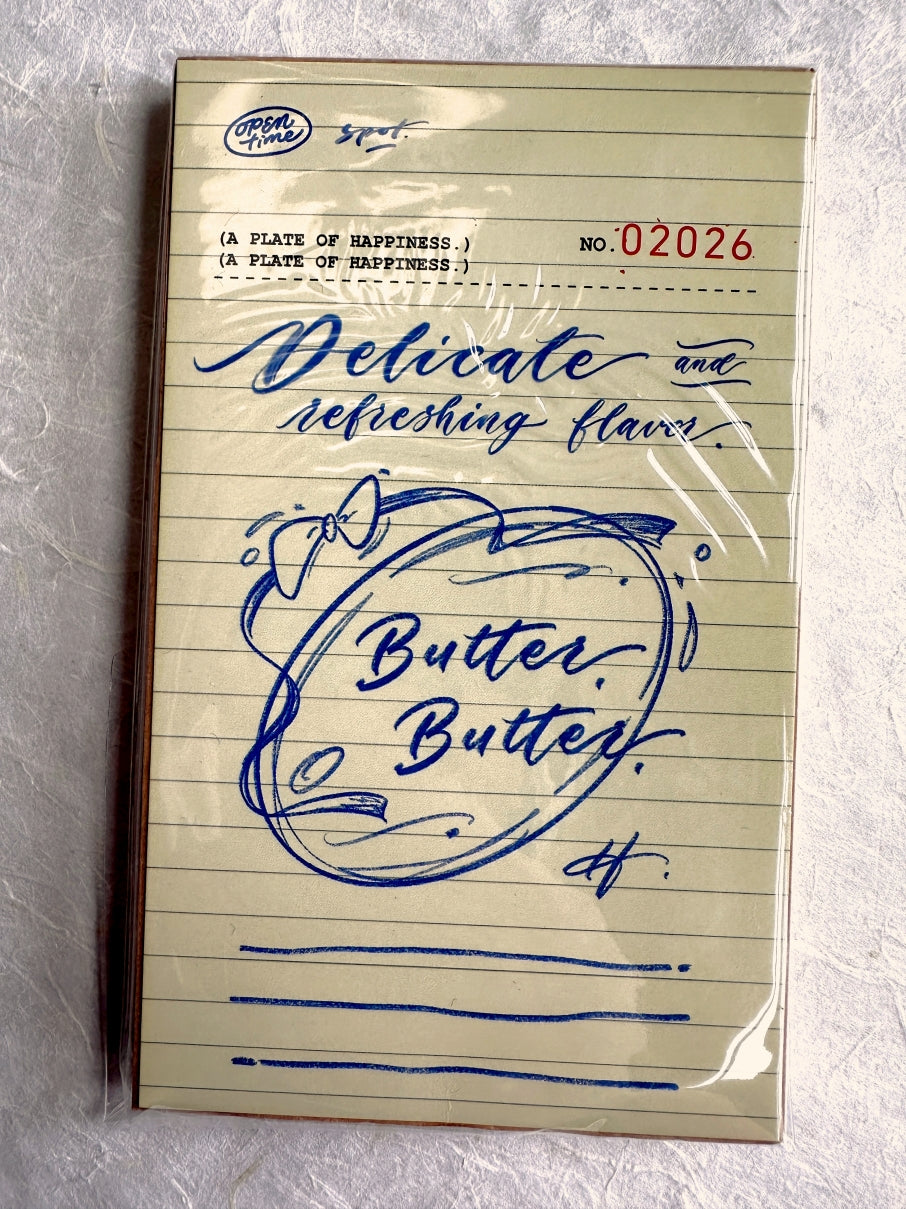 open
time
spot.
(A PLATE OF HAPPINESS.)
(A PLATE OF HAPPINESS.)
NO.02026
Delicate and
refreshing flavor.
Butter.
Butter.